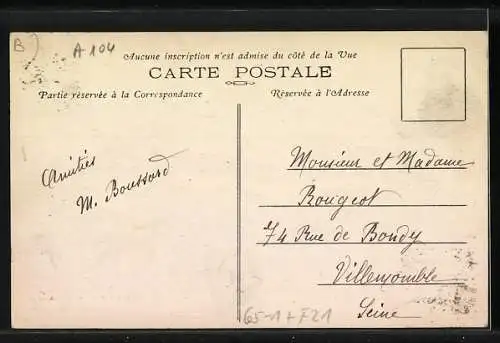 B
A 104
Aucune inscription n'est admise du côté de la Vue
CARTE POSTALE
Partie réservée à la Correspondance
Réservée à l'Adresse
Amitiés
M. Boussard
Monsieur et Madame
Rougeot
74 Rue de Bondy
Villemomble
Seine
65-1 + F21